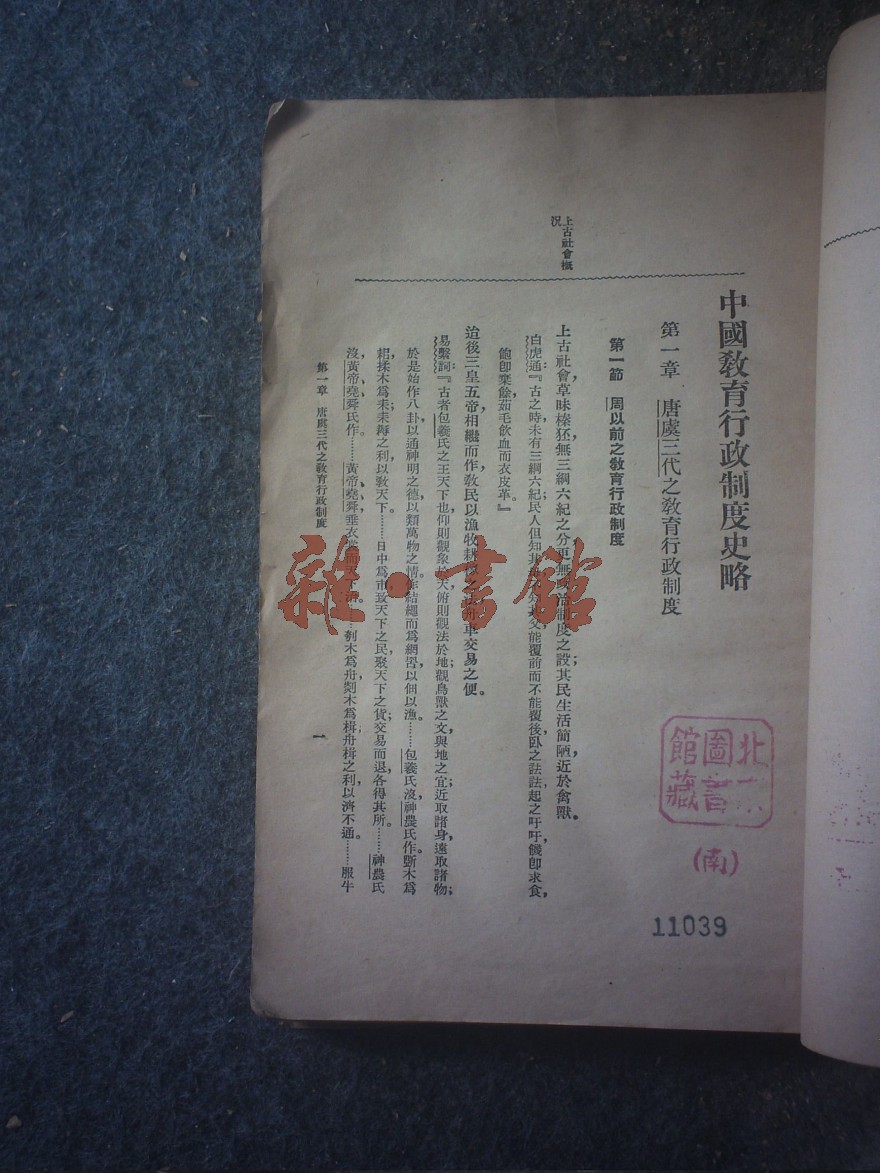 中國教育行政制度史略
第一章　唐虞三代之教育行政制度
第一節　周以前之教育行政制度
上古社會概
況
上古社會，草昧榛狉，無三綱六紀之分，更無政治制度之設；其民生活簡陋，近於禽獸。
白虎通：『古之時未有三綱六紀，民人但知其母，不知其父，能覆前而不能覆後，臥之詓詓，起之吁吁，饑卽求食，
飽卽棄餘，茹毛飲血，而衣皮革。』
迨後三皇五帝，相繼而作，教民以漁牧耕之車交易之便。
易繫詞：『古者包羲氏之王天下也，仰則觀象於天，俯則觀法於地，觀鳥獸之文，與地之宜；近取諸身，遠取諸物；
於是始作八卦，以通神明之德，以類萬物之情。作結繩而爲網罟，以佃以漁。……包羲氏沒，神農氏作。斲木爲
耜，揉木爲耒；耒耨之利，以教天下。……日中爲市，致天下之民，聚天下之貨；交易而退，各得其所。……神農氏
沒，黃帝、堯、舜氏作。……黃帝、堯、舜，垂衣裳而天下治。……刳木爲舟，剡木爲楫；舟楫之利，以濟不通。……服牛
第一章　唐虞三代之教育行政制度
一
雜·書館
北京
圖書
館藏
(南)
11039